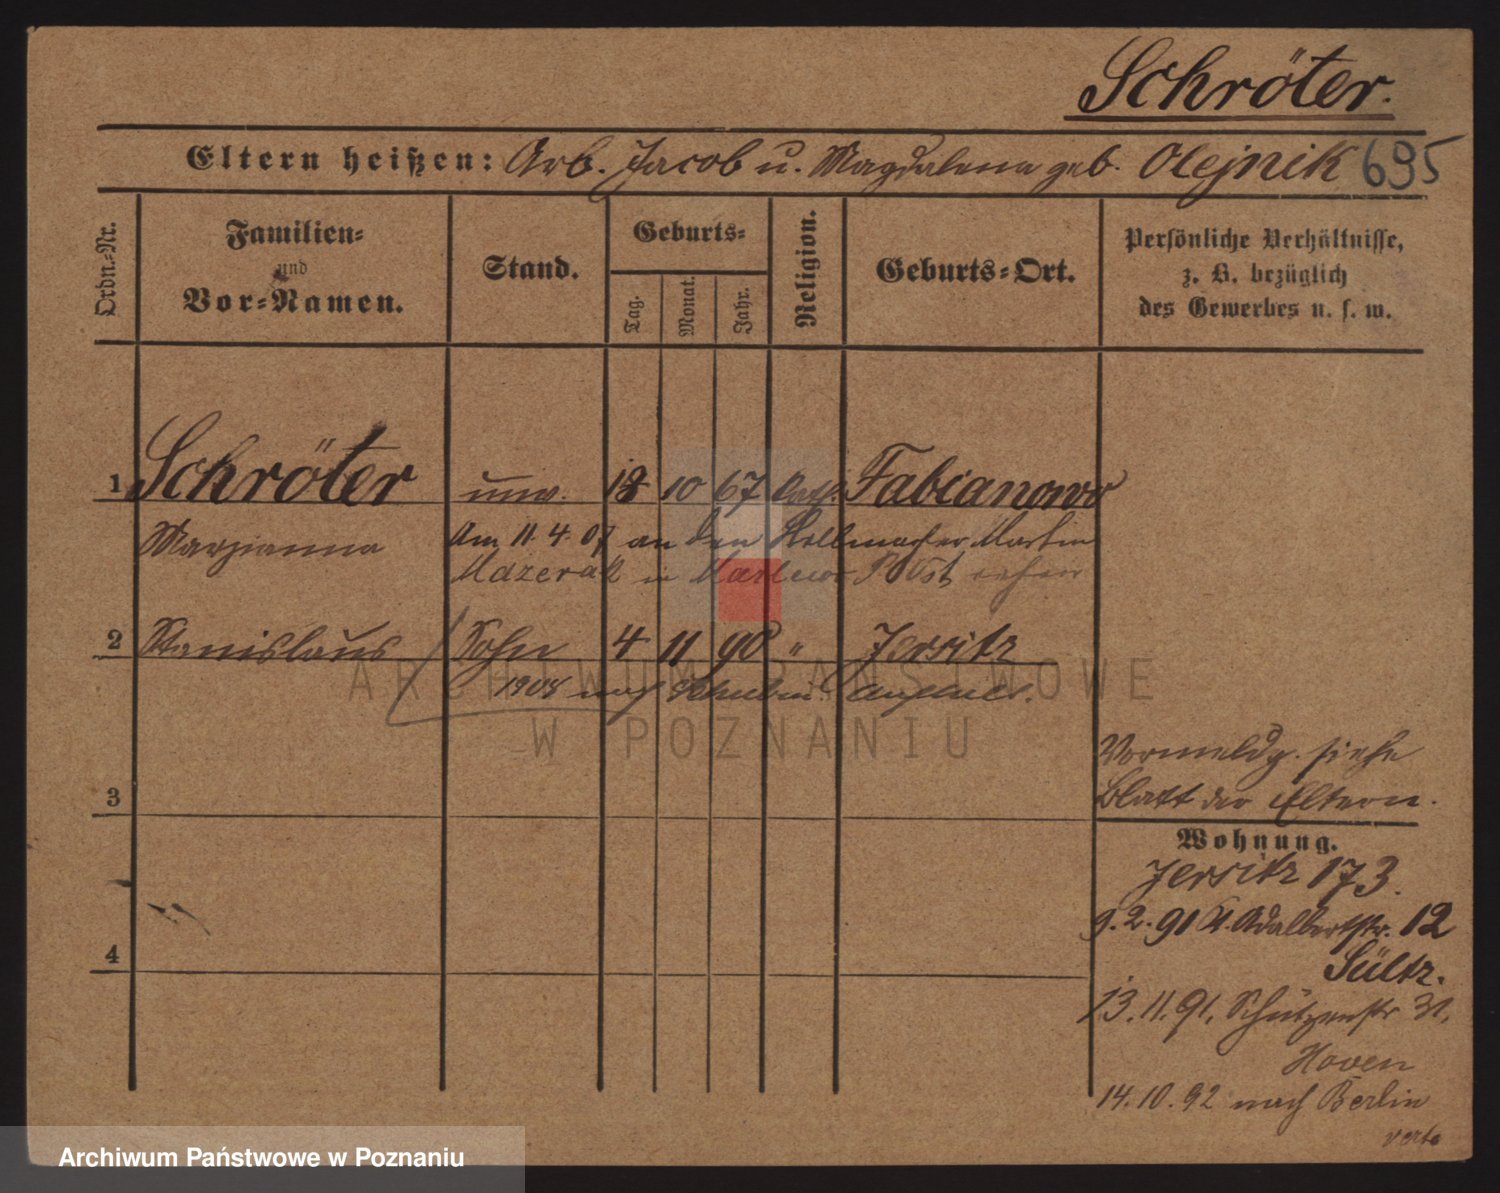 Schröter.
Eltern heißen: Arb. Jacob u. Magdalena geb. Olejnik 695
Ordn.-Nr.
Familien-
und
Vor-Namen.
Stand.
Geburts-
Tag.
Monat.
Jahr.
Religion.
Geburts-Ort.
Persönliche Verhältnisse,
z. B. bezüglich
des Gewerbes u. s. w.
1 Schröter unv. 18 10 67 Kath. Fabianowo
Marzianna Am 11.4.07 an den Stellmacher Martin
Mazerak in Karlewo
2 Stanislaus Sohn 4 11 90 " Jersitz
1908 nach Schubin
3
4
Vormeldg. siehe
Blatt der Eltern.
Wohnung.
Jersitz 173.
9.2.91 St. Adalbertstr. 12
Sültz.
13.11.91. Schützenstr 31,
Hoven
14.10.92 nach Berlin
verte
ARCHIWUM PAŃSTWOWE
W POZNANIU
Archiwum Państwowe w Poznaniu